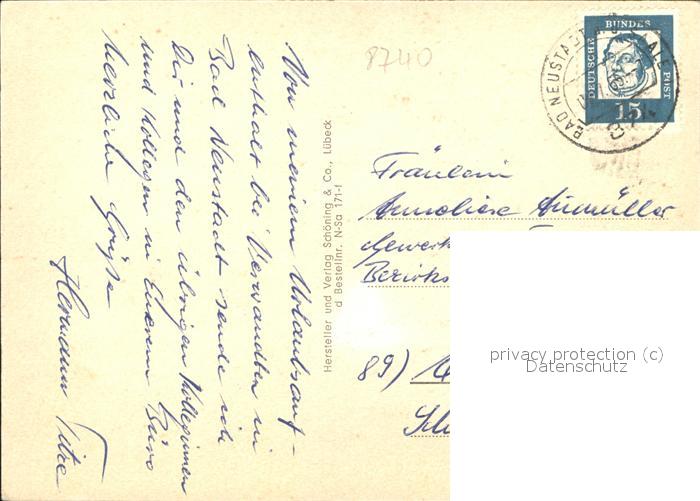 Von meinem Urlaubsauf-
enthalt bei Verwandten in
Bad Neustadt sende ich
Dir und den übrigen Kolleginnen
und Kollegen in Eurem Büro
herzliche Grüße
Hermann
Hersteller und Verlag Schöning & Co., Lübeck
a Bestellnr. N-Sa 171-f
8740
BAD NEUSTADT SAALE
DEUTSCHE BUNDES POST
15
Fräulein
Anneliese Aumüller
Gewerk
Bezirks
89)
privacy protection (c)
Datenschutz